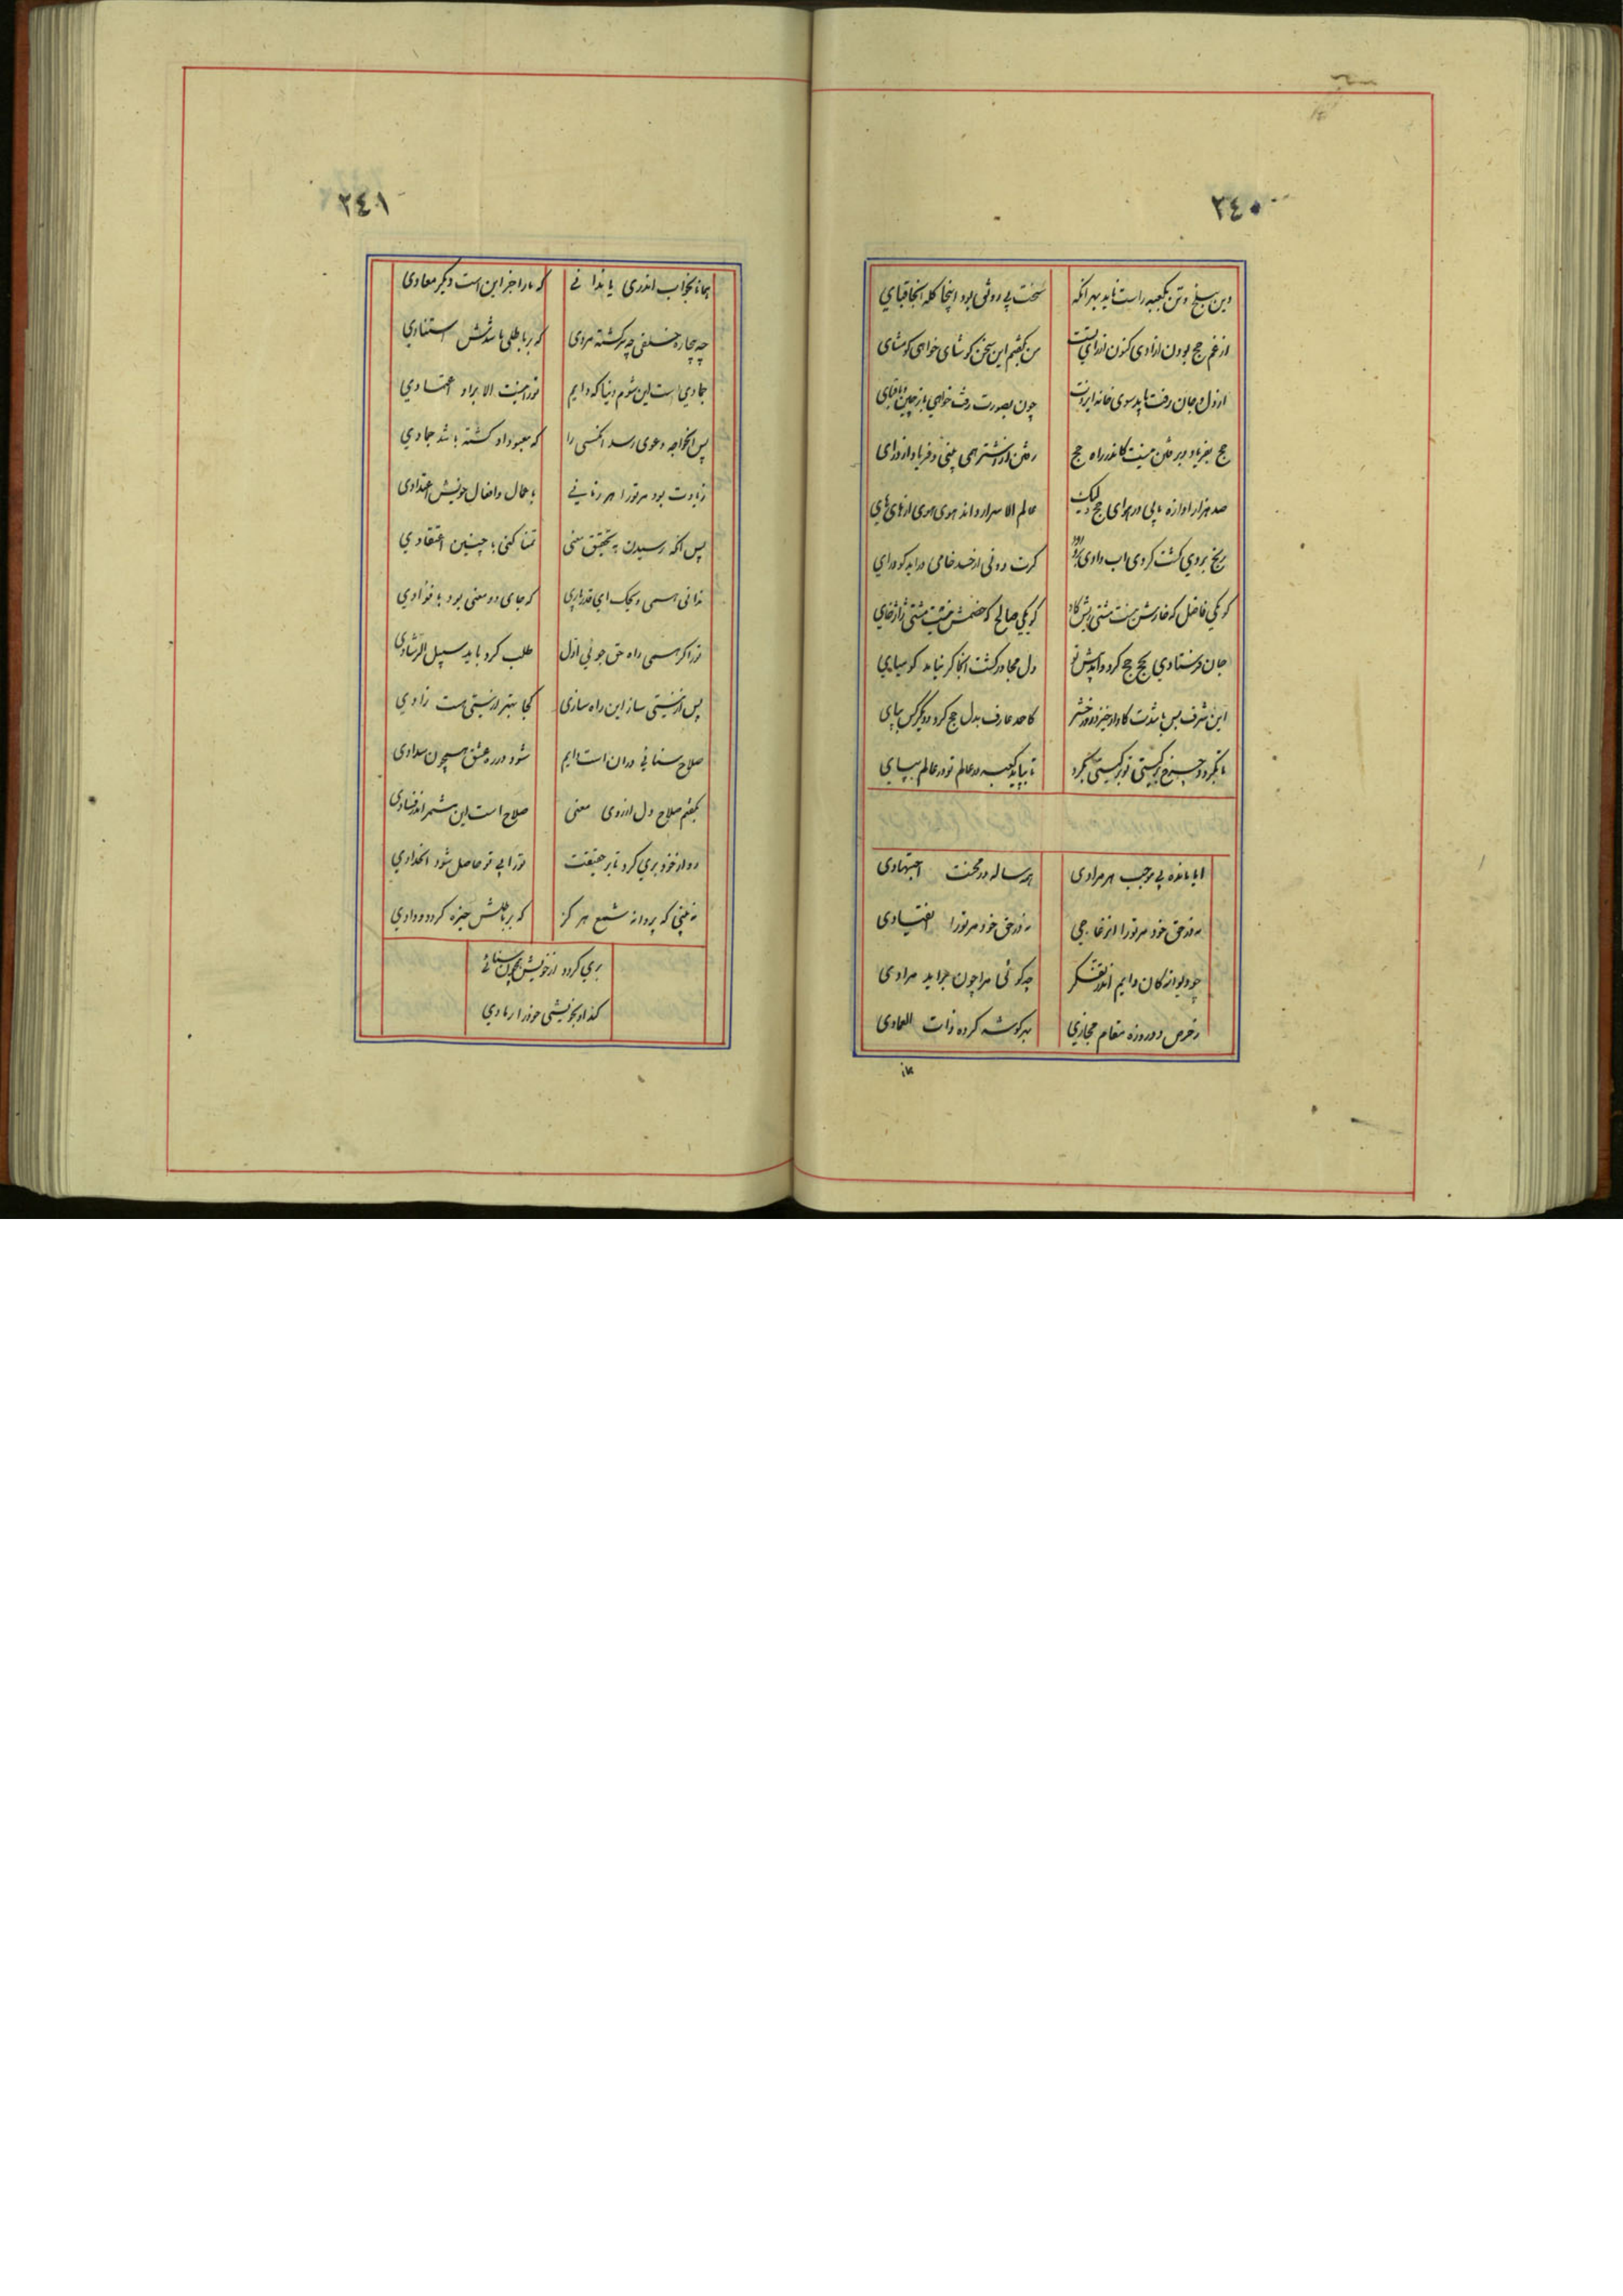 ٢٤٠
دین ببلخ و تن بکعبه راست ناید بهر انکه سخت بی رونق بود اینجا کله انجا قبای
از غم حج بودن ازادی کنون من بکفتم این سخن کو شای خواهی کو مشای
از دل و جان رفت باید سوی خانه ایزدت چون بصورت رفت خواهی
حج بفریاد و برفتن نیست کاندر راه حج رفتن از اشتر همی بینی و فریاد از درای
صد هزار اوازه یابی در هوای حج ولیک عالم الاسرار داند هوی هوی از های های
بریخ بروی کشت کردی اب دادی کرت روئی از خسد خامی دراید کو درای
کر یکی فاضل که خارش نیست مشتی ریش کاو کر یکی صالح که خصمش نیست مشتی ژاژخای
جان فرستادی بحج حج کرد و امد پیش تو دل مجاور کشت انجا کر نیاید کو میای
این شرف بس باشدت کاواز خیزد روز حشر کاحمد عارف بدل حج کرد و دیگر کس بپای
تا نکردد چرخ بر کیتی تو بر کیتی بکرد تا نپاید کعبه در عالم تو در عالم بپای
ایا مانده بی موجب هر مرادی همه ساله در محنت اجتهادی
نه در حق خود مر تورا انزعاجی نه در حق خود مر تورا انقیادی
چو دیوانه کان دایم اندر تفکر چه کوئی مرا چون براید مرادی
ز حرص دو روزه مقام مجازی بهر کوشه کرده ذات العمادی
همانا
٢٤١
همانا بخواب اندری یا ندانی که مارا جز این است دیکر معادی
چه بیچاره خلقی چه سرکشته مردی که بر باطلی باشدش استنادی
جمادی است این شوم دنیا که دایم تورا نیست الا براو اعتمادی
پس انخواجه دعوی رسد انکسی را که معبود او کشته باشد جمادی
زیادت بود مر تورا هر زمانی باعمال و افعال خویش اعتدادی
پس انکه رسیدن به تحقیق معنی تمنا کنی با چنین اعتقادی
ندانی همی ویحک ای قدر باری که جای دو معنی بود با فؤادی
تورا کر همی راه حق جوئی اول طلب کرد باید سبیل الرشادی
پس از نیستی ساز این راه سازی کجا بهتر از نیستی هست زادی
صلاح سنائی دران است دایم شود در ره عشق همچون سدادی
بکفتم صلاح دل از روی معنی صلاح است این مشمر اندر فسادی
رو از خود بری کرد تا بر حقیقت تورا بی تو حاصل شود اتحادی
نه بینی که پروانه شمع هر کز که بر باطلش خیره کردد ودادی
بری کردد از خویش همچون سنائی
کند او بخویشی خود را رمادی